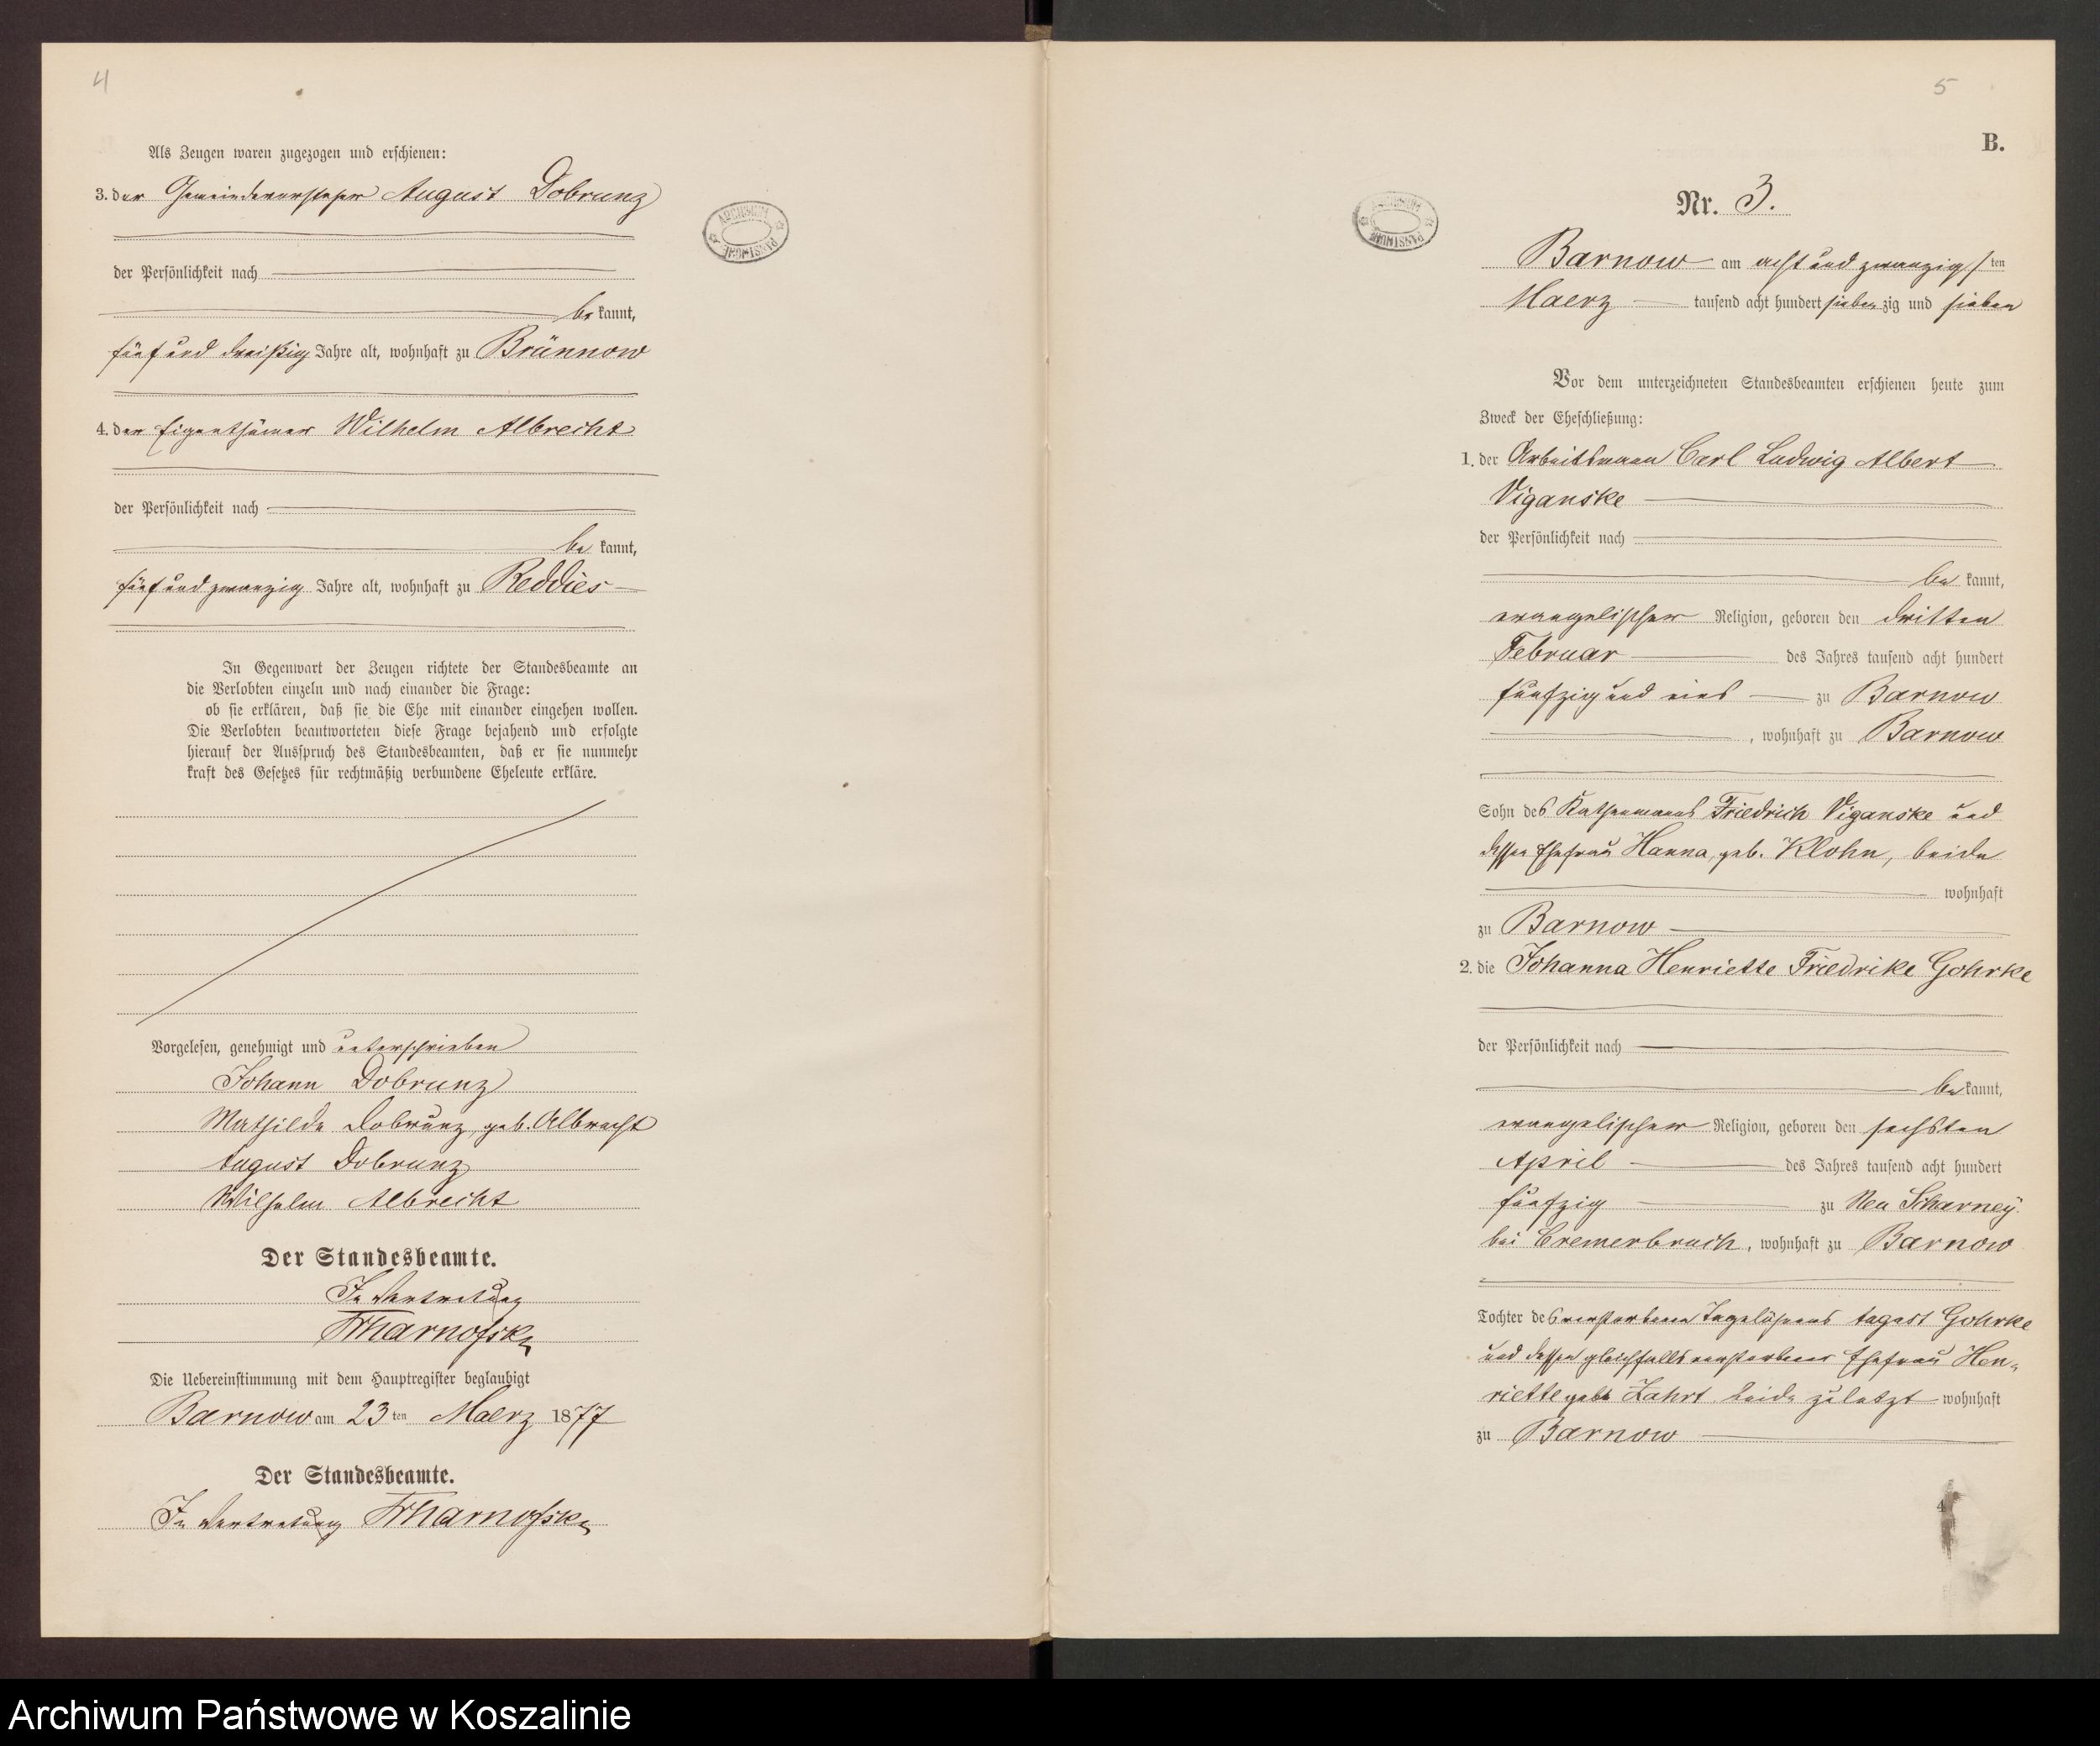 4
Als Zeugen waren zugezogen und erschienen:
3. der Gemeindevorsteher August Dobrunz
der Persönlichkeit nach
be kannt,
fünf und dreißig Jahre alt, wohnhaft zu Brünnow
4. der Eigenthümer Wilhelm Albrecht
der Persönlichkeit nach
be kannt,
fünf und zwanzig Jahre alt, wohnhaft zu Reddies
In Gegenwart der Zeugen richtete der Standesbeamte an
die Verlobten einzeln und nach einander die Frage:
ob sie erklären, daß sie die Ehe mit einander eingehen wollen.
Die Verlobten beantworteten diese Frage bejahend und erfolgte
hierauf der Ausspruch des Standesbeamten, daß er sie nunmehr
kraft des Gesetzes für rechtmäßig verbundene Eheleute erkläre.
Vorgelesen, genehmigt und unterschrieben
Johann Dobrunz
Mathilde Dobrunz, geb. Albrecht
August Dobrunz
Wilhelm Albrecht
Der Standesbeamte.
In Vertretung
Die Uebereinstimmung mit dem Hauptregister beglaubigt
Barnow am 23 ten Maerz 1877
Der Standesbeamte.
In Vertretung
ARCHIWUM PAŃSTWOWE
5
B.
Nr. 3.
Barnow am acht und zwanzigsten
Maerz tausend acht hundert siebenzig und sieben
Vor dem unterzeichneten Standesbeamten erschienen heute zum
Zweck der Eheschließung:
1. der Arbeitsmann Carl Ludwig Albert
Viganske
der Persönlichkeit nach
be kannt,
evangelischer Religion, geboren den dritten
Februar des Jahres tausend acht hundert
fünfzig und eins zu Barnow
, wohnhaft zu Barnow
Sohn des Kathenmanns Friedrich Viganske und
dessen Ehefrau Hanna, geb. Klohn, beide
wohnhaft
zu Barnow
2. die Johanna Henriette Friedrike Gohrke
der Persönlichkeit nach
be kannt,
evangelischer Religion, geboren den sechsten
April des Jahres tausend acht hundert
fünfzig zu Neu Scharney
bei Cremerbruch, wohnhaft zu Barnow
Tochter des verstorbenen Tagelöhners August Gohrke
und dessen gleichfalls verstorbener Ehefrau Hen-
riette geb. Zahrt beide zuletzt wohnhaft
zu Barnow
4
Archiwum Państwowe w Koszalinie